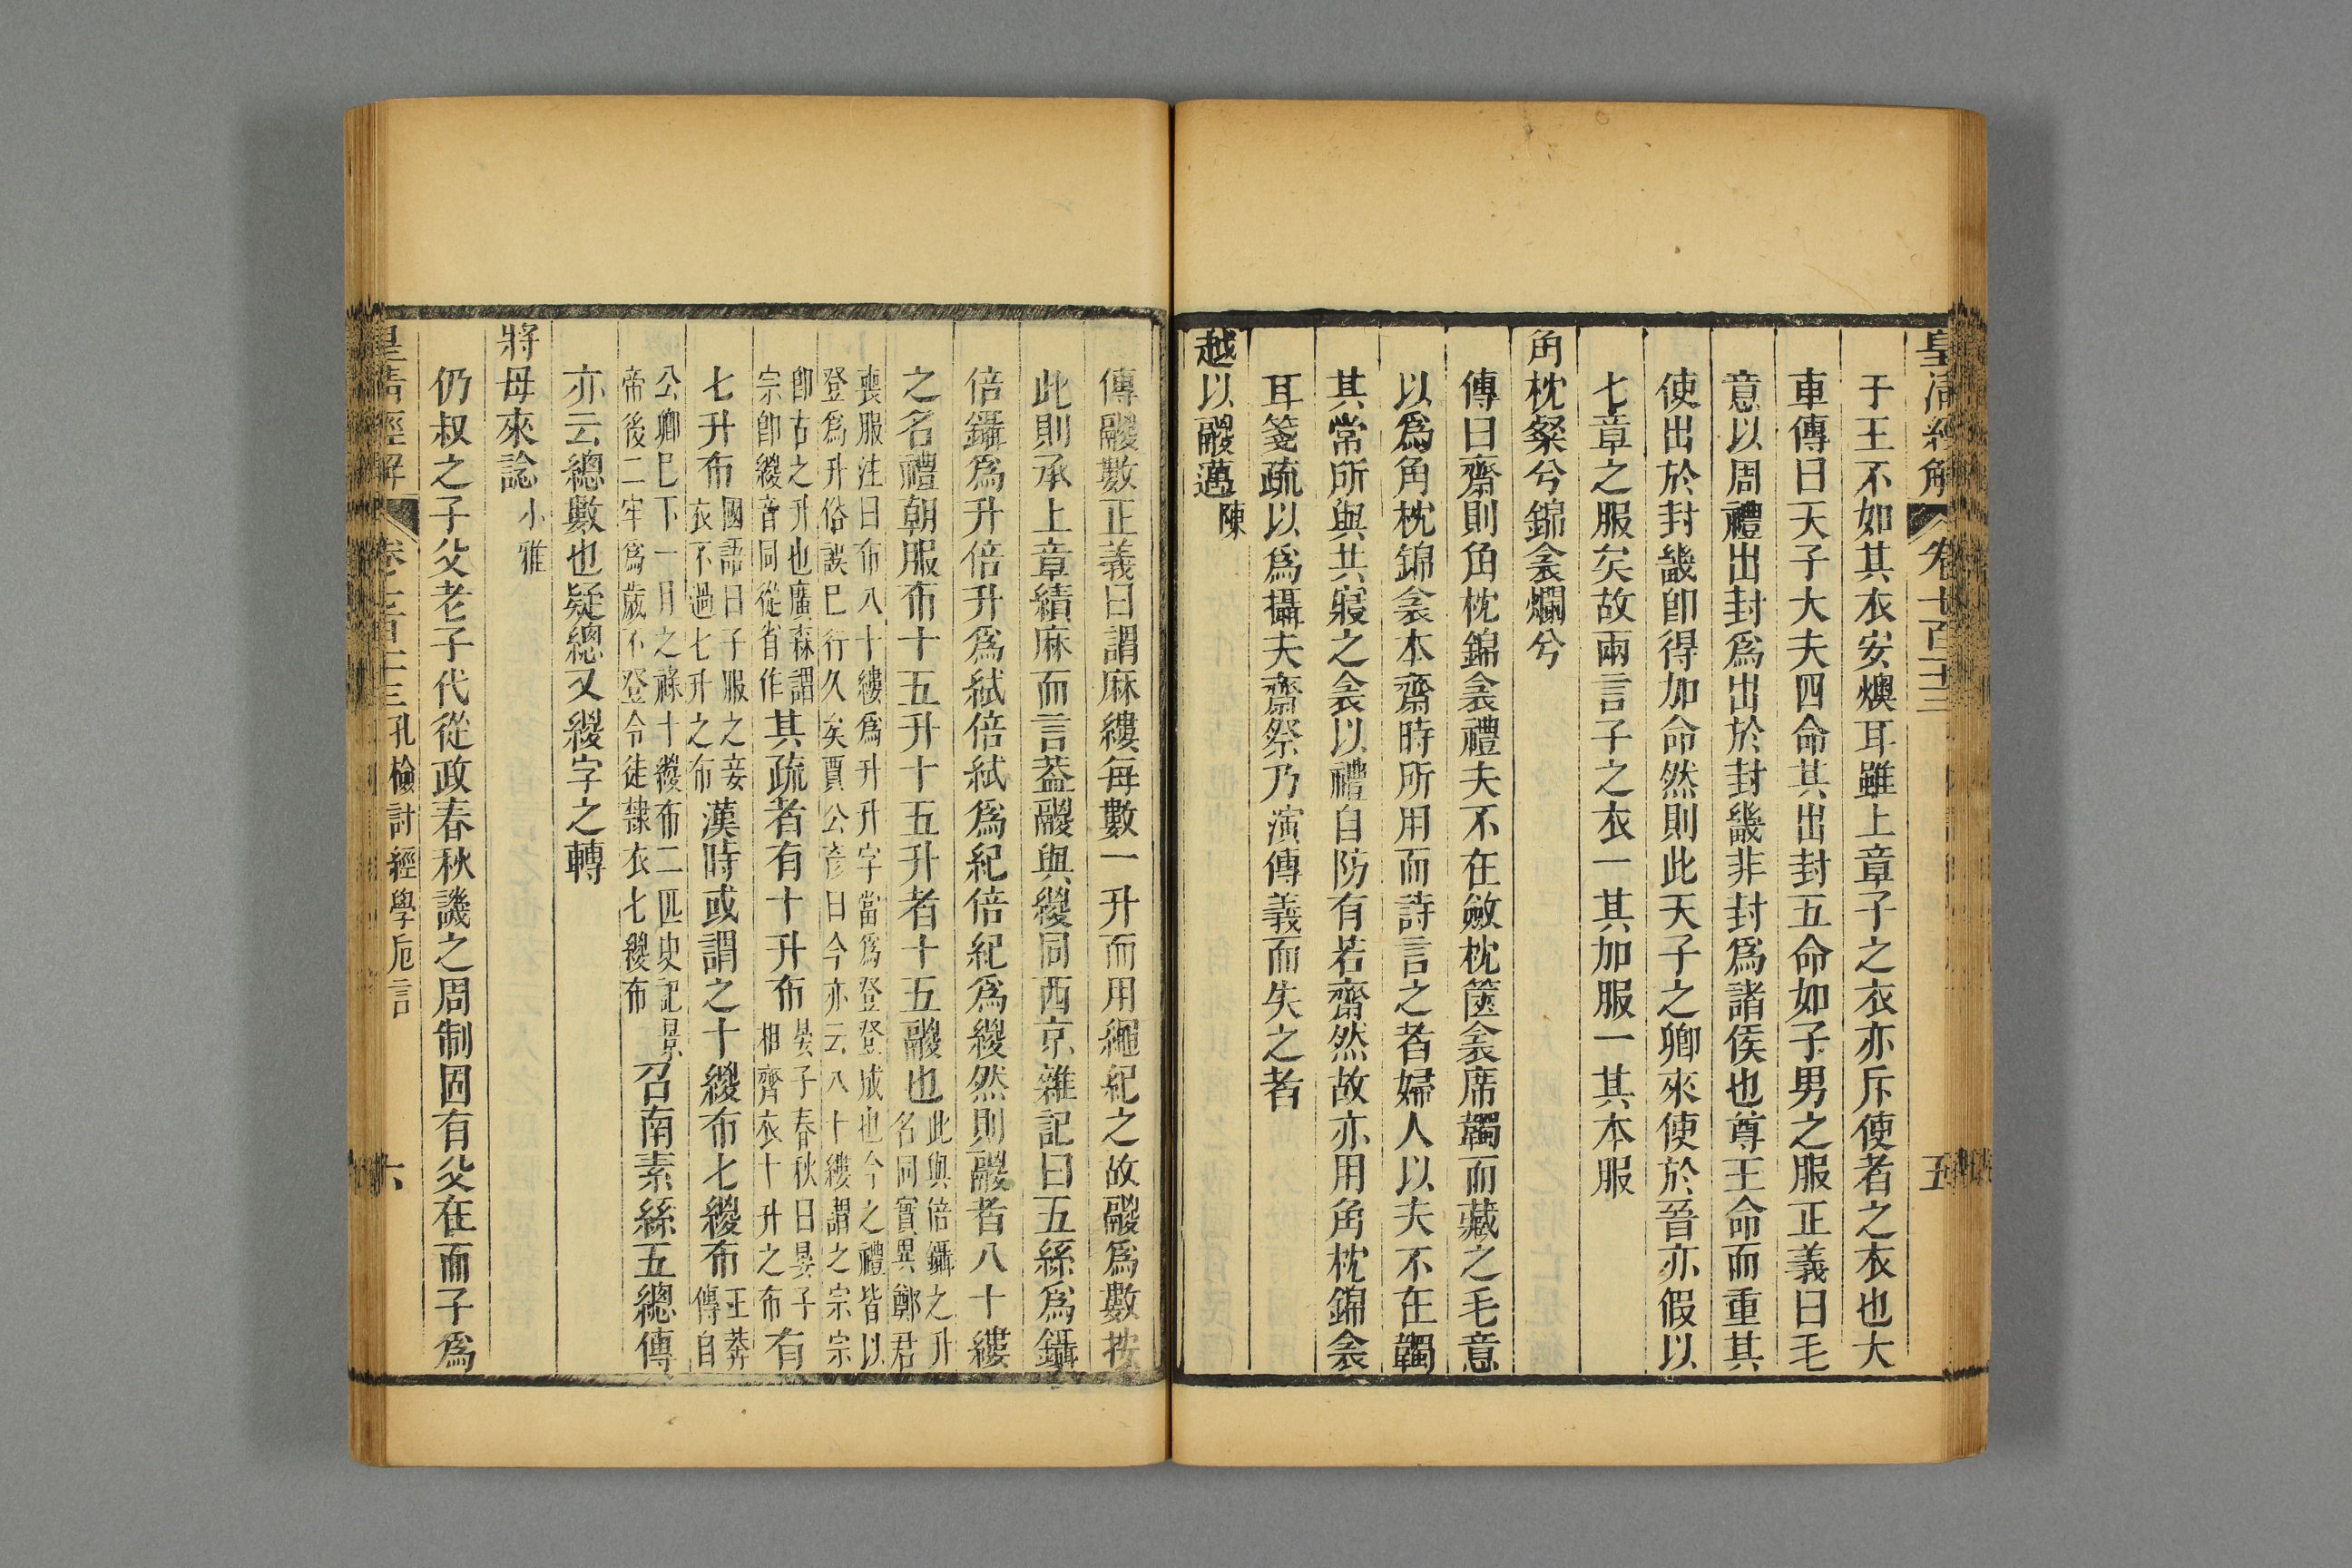 皇清經解 卷七百十三 五
于王不如其衣安燠耳雖上章子之衣亦斥使者之衣也大
車傳曰天子大夫四命其出封五命如子男之服正義曰毛
意以周禮出封爲出於封畿非封爲諸侯也尊王命而重其
使出於封畿卽得加命然則此天子之卿來使於晉亦假以
七章之服矣故兩言子之衣一其加服一其本服
角枕粲兮錦衾爛兮
傳曰齋則角枕錦衾禮夫不在斂枕篋衾席韣而藏之毛意
以爲角枕錦衾本齋時所用而詩言之者婦人以夫不在韣
其常所與共寢之衾以禮自防有若齋然故亦用角枕錦衾
耳箋疏以爲攝夫齋祭乃演傳義而失之者
越以鬷邁陳
傳鬷數正義曰謂麻縷每數一升而用繩紀之故鬷爲數按
此則承上章績麻而言蓋鬷與緵同西京雜記曰五絲爲䌰
倍䌰爲升倍升爲紽倍紽爲紀倍紀爲緵然則鬷者八十縷
之名禮朝服布十五升十五升者十五鬷也此與倍䌰之升名同實異鄭君
喪服注曰布八十縷爲升升字當爲登登成也今之禮皆以登爲升俗誤已行久矣賈公彥曰今亦云八十縷謂之宗宗
卽古之升也廣森謂宗卽緵音同從省作其疏者有十升布晏子春秋曰晏子相齊衣十升之布有
七升布國語曰子服之妾衣不過七升之布漢時或謂之十緵布七緵布王莽傳自
公卿已下一月之祿十緵布二匹史記景帝後二年爲歲不登令徒隸衣七緵布召南素絲五總傳
亦云總數也疑總又緵字之轉
將母來諗小雅
仍叔之子父老子代從政春秋譏之周制固有父在而子爲
皇清經解 卷七百十三孔檢討經學卮言 六